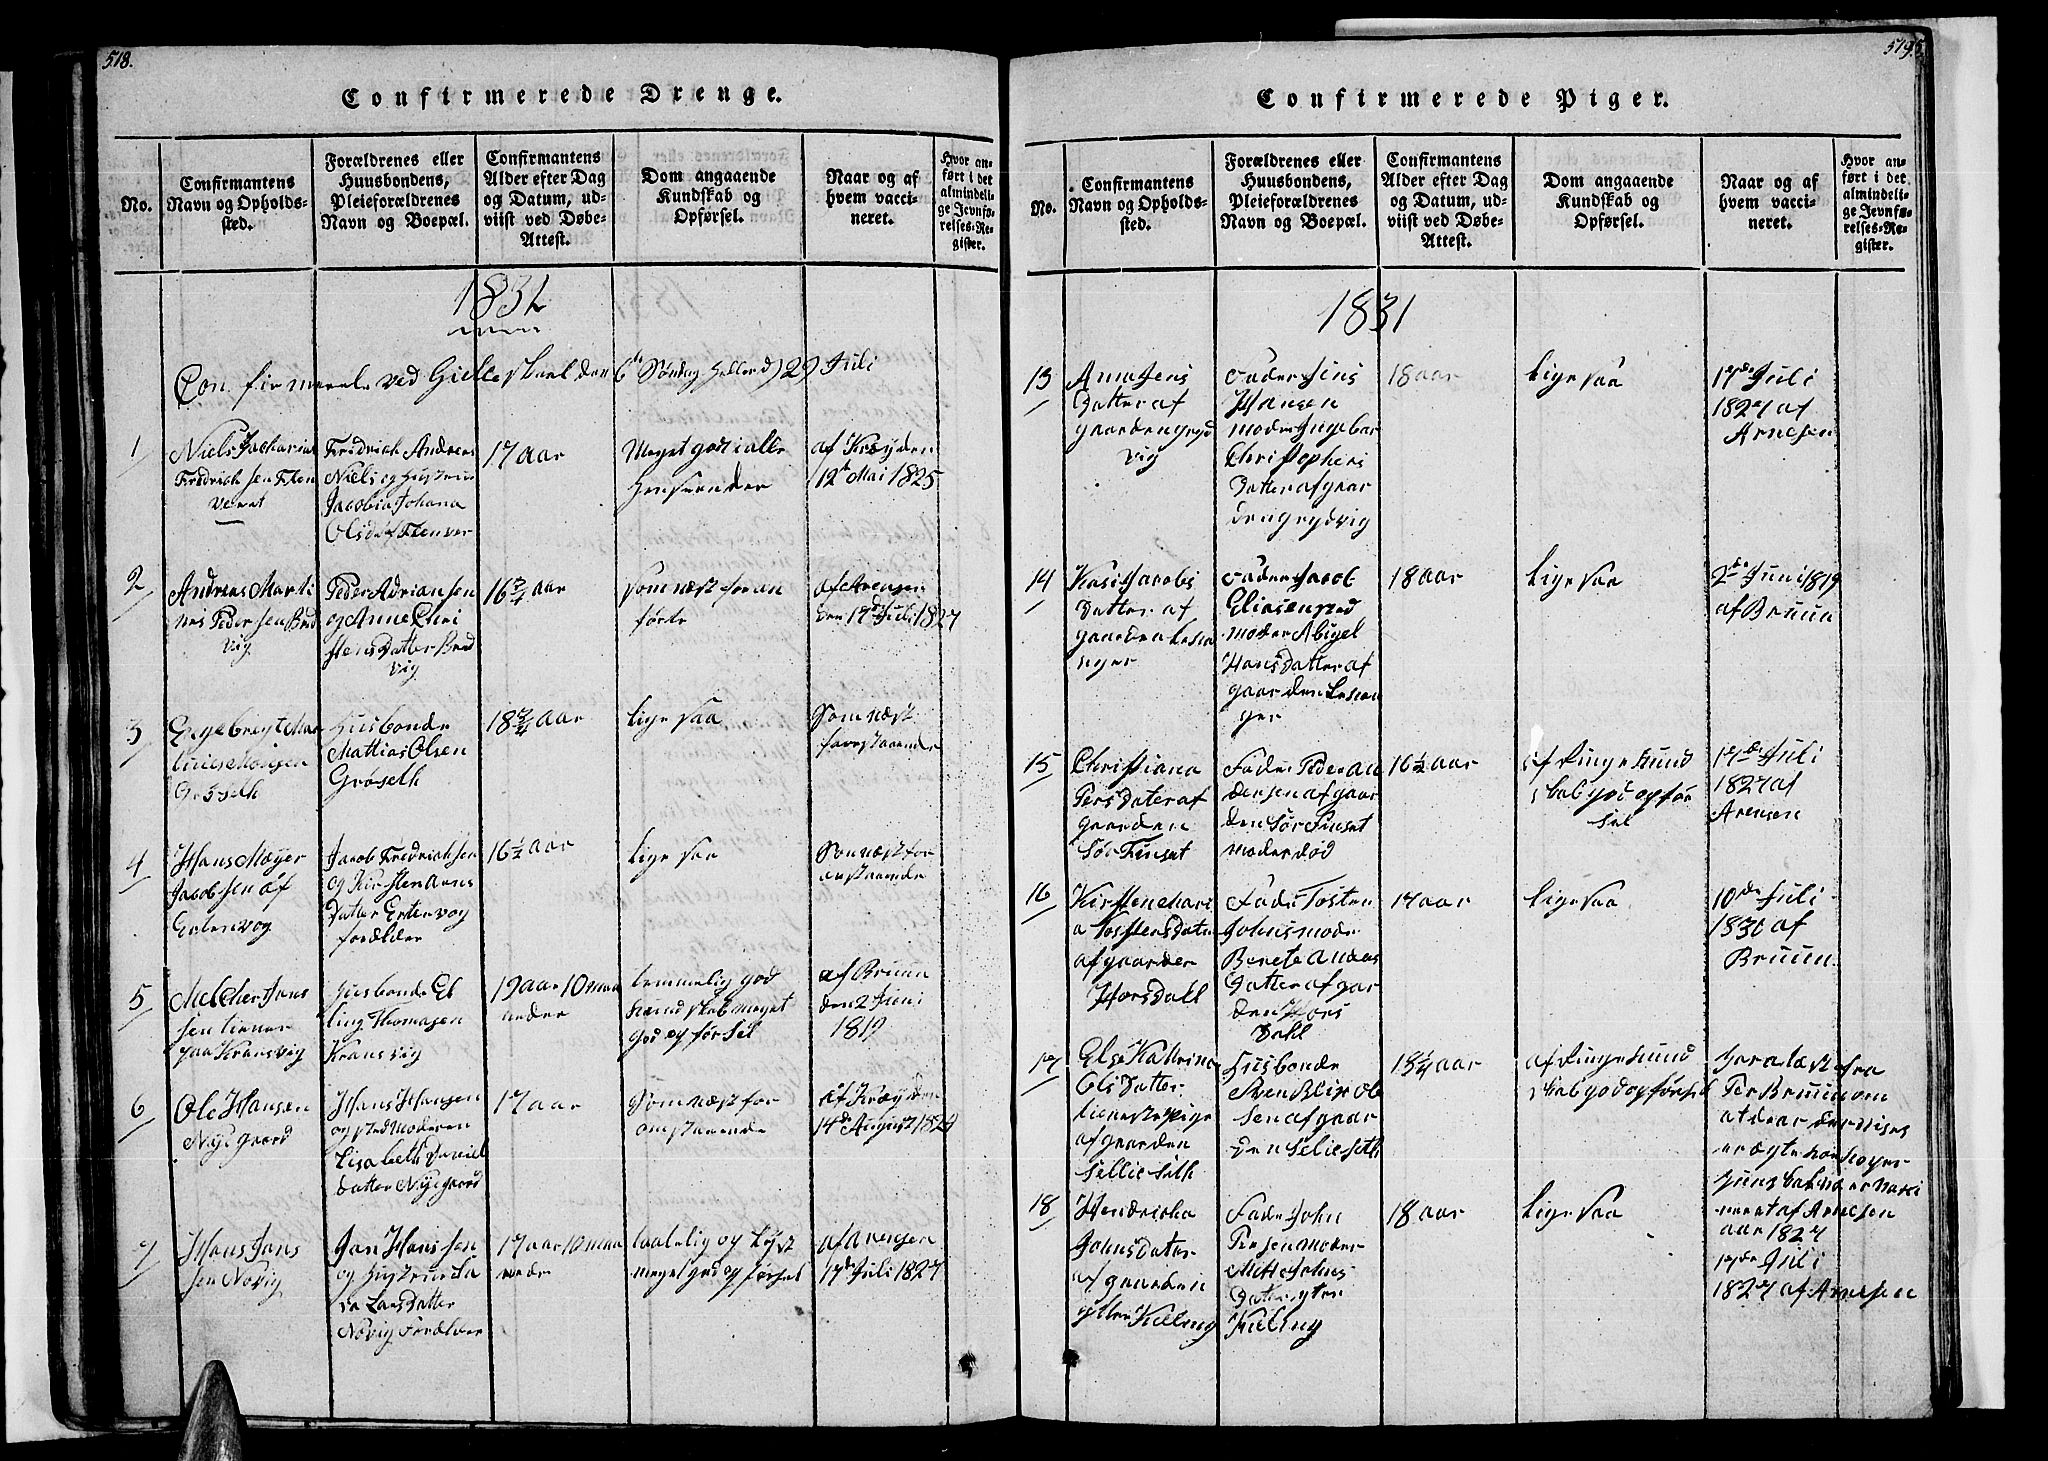 518.
Confirmerede Drenge.
No.
Confirmantens
Navn og Opholds-
sted.
Forældrenes eller
Huusbondens,
Pleieforældrenes
Navn og Boepæl.
Confirmantens
Alder efter Dag
og Datum, ud-
viist ved Døbe-
Attest.
Dom angaaende
Kundskab og
Opførsel.
Naar og af
hvem vacci-
neret.
Hvor an-
ført i det
almindeli-
ge Jevnfø-
relses-Re-
gister.
1831
ved Gilleskaal den 6te Søndag 29 Juli
1
Niels Zacharias
Fredrichsen Flen
veret
Fredrich Andreas
Niels og Hustrue
Jacobia Johana
Olsdat Flenver
17 aar
Meget god i alle
Henseender
af Krøyden
12te Mai 1825
2
Andreas Marti
nus Pedersen Bred
vig
Peder Adriansen
og Anne Chri
stens Datter Bred
vig
16 3/4 aar
Som næst foran
førte
af Arensen
den 17de Juli 1827
3
Engebregt Mar
Monsen
Grøseth
Husbonde
Mattias Olsen
Grøseth
18 3/4 aar
lige saa
Som næst
forestaaende
4
Hans Meyer
Jacobsen af
Ertenvog
Jacob Fredrichsen
og Kirsten Arns
Datter Ertenvog
forælder
16 1/2 aar
lige saa
Som næst for
enstaaende
5
Melcher Jans
sen tiener
paa Kransvig
Husbonde El
ling Thomasen
Kransvig
19 aar 10 maa
neder
temmelig god
kundskab meget
god opførsel
af Bruun
den 2 Juni
1819
6
Ole Hansen
Nygaard
Hans Hansen
og stedmoderen
Lisabeth Daniel
datter Nygaard
17 aar
Som næst for
omstaaende
af Krøyden
14de August 1824
7
Hans Jans
sen Novig
Jan Hanssen
og Hustrue
Larsdatter
Novig Forælder
17 aar 10 maa
neder
taalelig og
meget god opførsel
af Arensen
17de Juli 1827
519.
Confirmerede Piger.
No.
Confirmantens
Navn og Opholds-
sted.
Forældrenes eller
Huusbondens,
Pleieforældrenes
Navn og Boepæl.
Confirmantens
Alder efter Dag
og Datum, ud-
viist ved Døbe-
Attest.
Dom angaaende
Kundskab og
Opførsel.
Naar og af
hvem vacci-
neret.
Hvor an-
ført i det
almindeli-
ge Jevnfø-
relses-Re-
gister.
1831
13
Anna Jens
Datter af
gaarden grÿd
vig
Fader Jens
Hansen
moder Ingebor
Christophers
Datter af gaar
den grydvig
18 aar
lige saa
17de Juli
1827 af
Arnesen
14
Jacobs
Datter af
gaarden
Fader Jacob
Eliesen
moder Abigel
Hans Datter af
gaarden
18 aar
lige saa
2de Juni 1819
af Bruun
15
Christiana
Pers Dater af
gaarden
Sør Finset
Fader Peder An
dersen af gaar
den Sør Finset
moder død
16 1/2 aar
af Ringe kund
skab god opfør
sel
17de Juli
1827 af
Arensen
16
Kirsten Mari
a Tostens Dater
af gaarden
Horsdall
Fader Tosten
Johns mode
Berete Anders
Datter af gaar
den Hors
Dahl
17 aar
lige saa
10de Juli
1830 af
Bruun
17
Else Katrina
Ols Datter
tieneste Pige
af gaarden
Sellie Seth
Husbonde
Sven Blix Ol
sen af gaar
den Selie Seth
19 1/4 aar
af Ringe kund
skab god opførsel
fra
Per Bruun om
at
nerat af Arnesen
aar 1827
18
Hendricka
Johns Dater
af gaarden
ytter Kieling
Fader John
Persen Moder
Mette Johns
Datter yter
Kieling
18 aar
lige saa
17de Juli
1827 af Arnesen